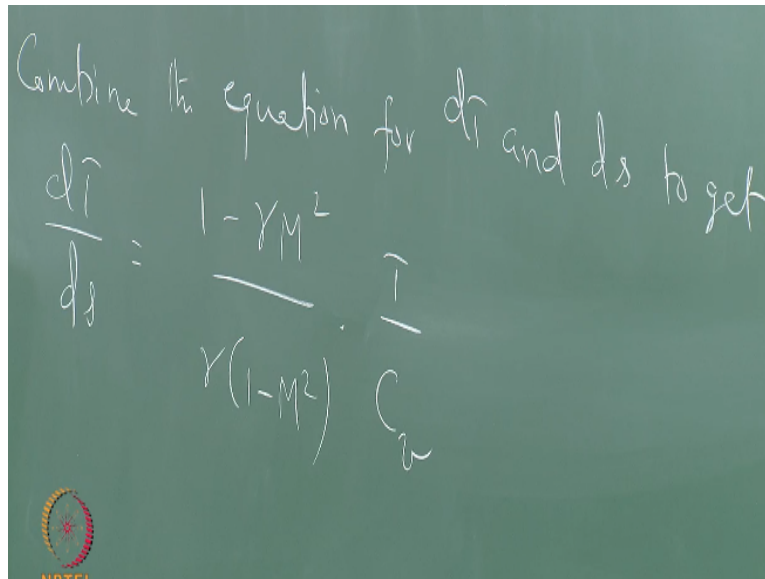 Combine the equation for dT and ds to get
dT/ds = 1 - γM² / γ(1-M²) · T/C_v
NPTEL